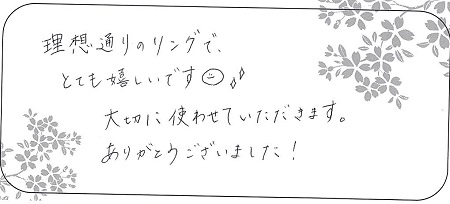 理想通りのリングで、
とても嬉しいです☺
大切に使わせていただきます。
ありがとうございました！